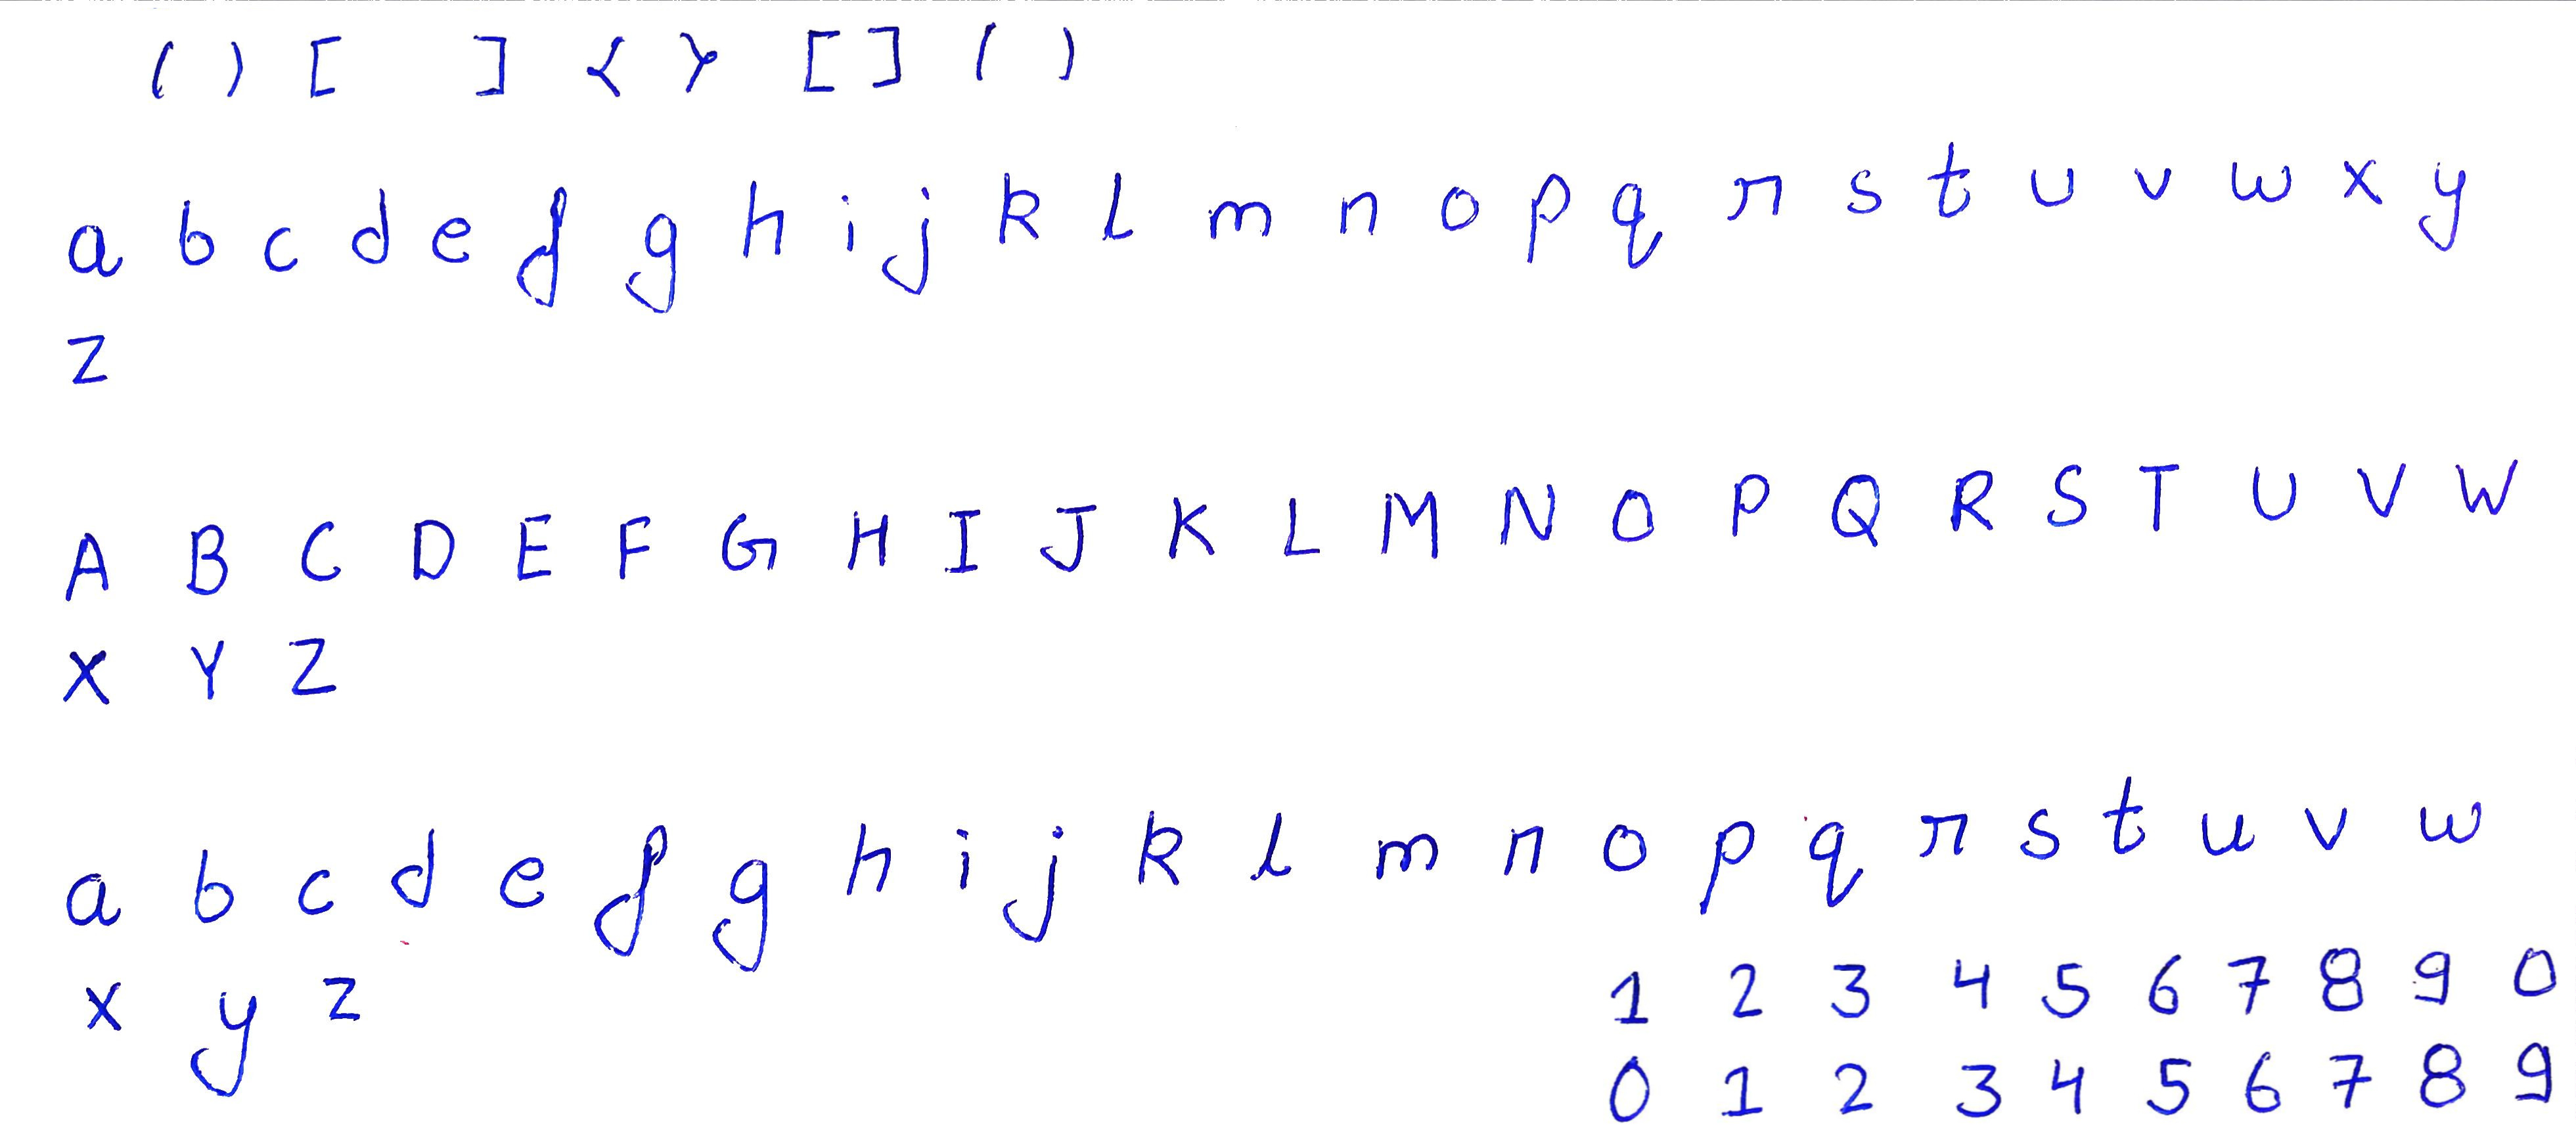 ( ) [ ] { } [ ] ( )
a b c d e f g h i j k l m n o p q r s t u v w x y
z
A B C D E F G H I J K L M N O P Q R S T U V W
X Y Z
a b c d e f g h i j k l m n o p q r s t u v w
x y z 1 2 3 4 5 6 7 8 9 0
0 1 2 3 4 5 6 7 8 9